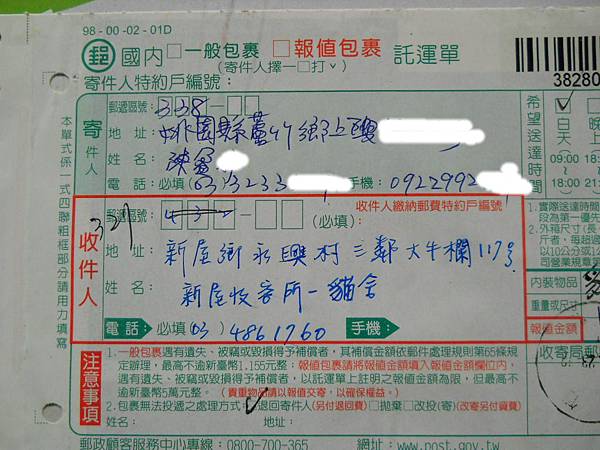 98-00-02-01D
郵 國內 □一般包裹 □報值包裹 託運單
(寄件人擇一□打ˇ)
38280
寄件人特約戶編號:
寄件人
郵遞區號: 338-□□
地 址: 桃園縣蘆竹鄉上
姓 名: 陳
電 話: 必填(03)3233 手機: 0922992
希望送達時間
白天
晚
09:00
18:00
18:0
21:
本單式係一式四聯粗框部分請用力填寫
收件人
327
郵遞區號: 43 □-□□ 收件人繳納郵費特約戶編號
(必填):
地 址: 新屋鄉永興村三鄰大牛欄117号
姓 名: 新屋收容所-貓舍
電話: 必填(03) 4861760 手機:
1.實際送達時間
段為第一優先
2.外箱尺寸(長
斤者,每超過
以10公分或1公
司營業規章
內裝物品
重量或尺寸
報值金額
收寄局郵
注意事項
1.一般包裹遇有遺失、被竊或毀損得予補償者,其補償金額依郵件處理規則第65條規
定辦理,最高不逾新臺幣1,155元整;報值包裹請將報值金額填入報值金額欄位內,
遇有遺失、被竊或毀損得予補償者,以託運單上註明之報值金額為限,但最高不
逾新臺幣5萬元整。(貴重物品請以報值交寄,以確保權益。)
2.包裹無法投遞之處理方式:□退回寄件人(另付退回費) □拋棄 □改投(寄) (改寄另付資費)
姓名: 地址:
郵政顧客服務中心專線:0800-700-365 網址:www.post.gov.tw